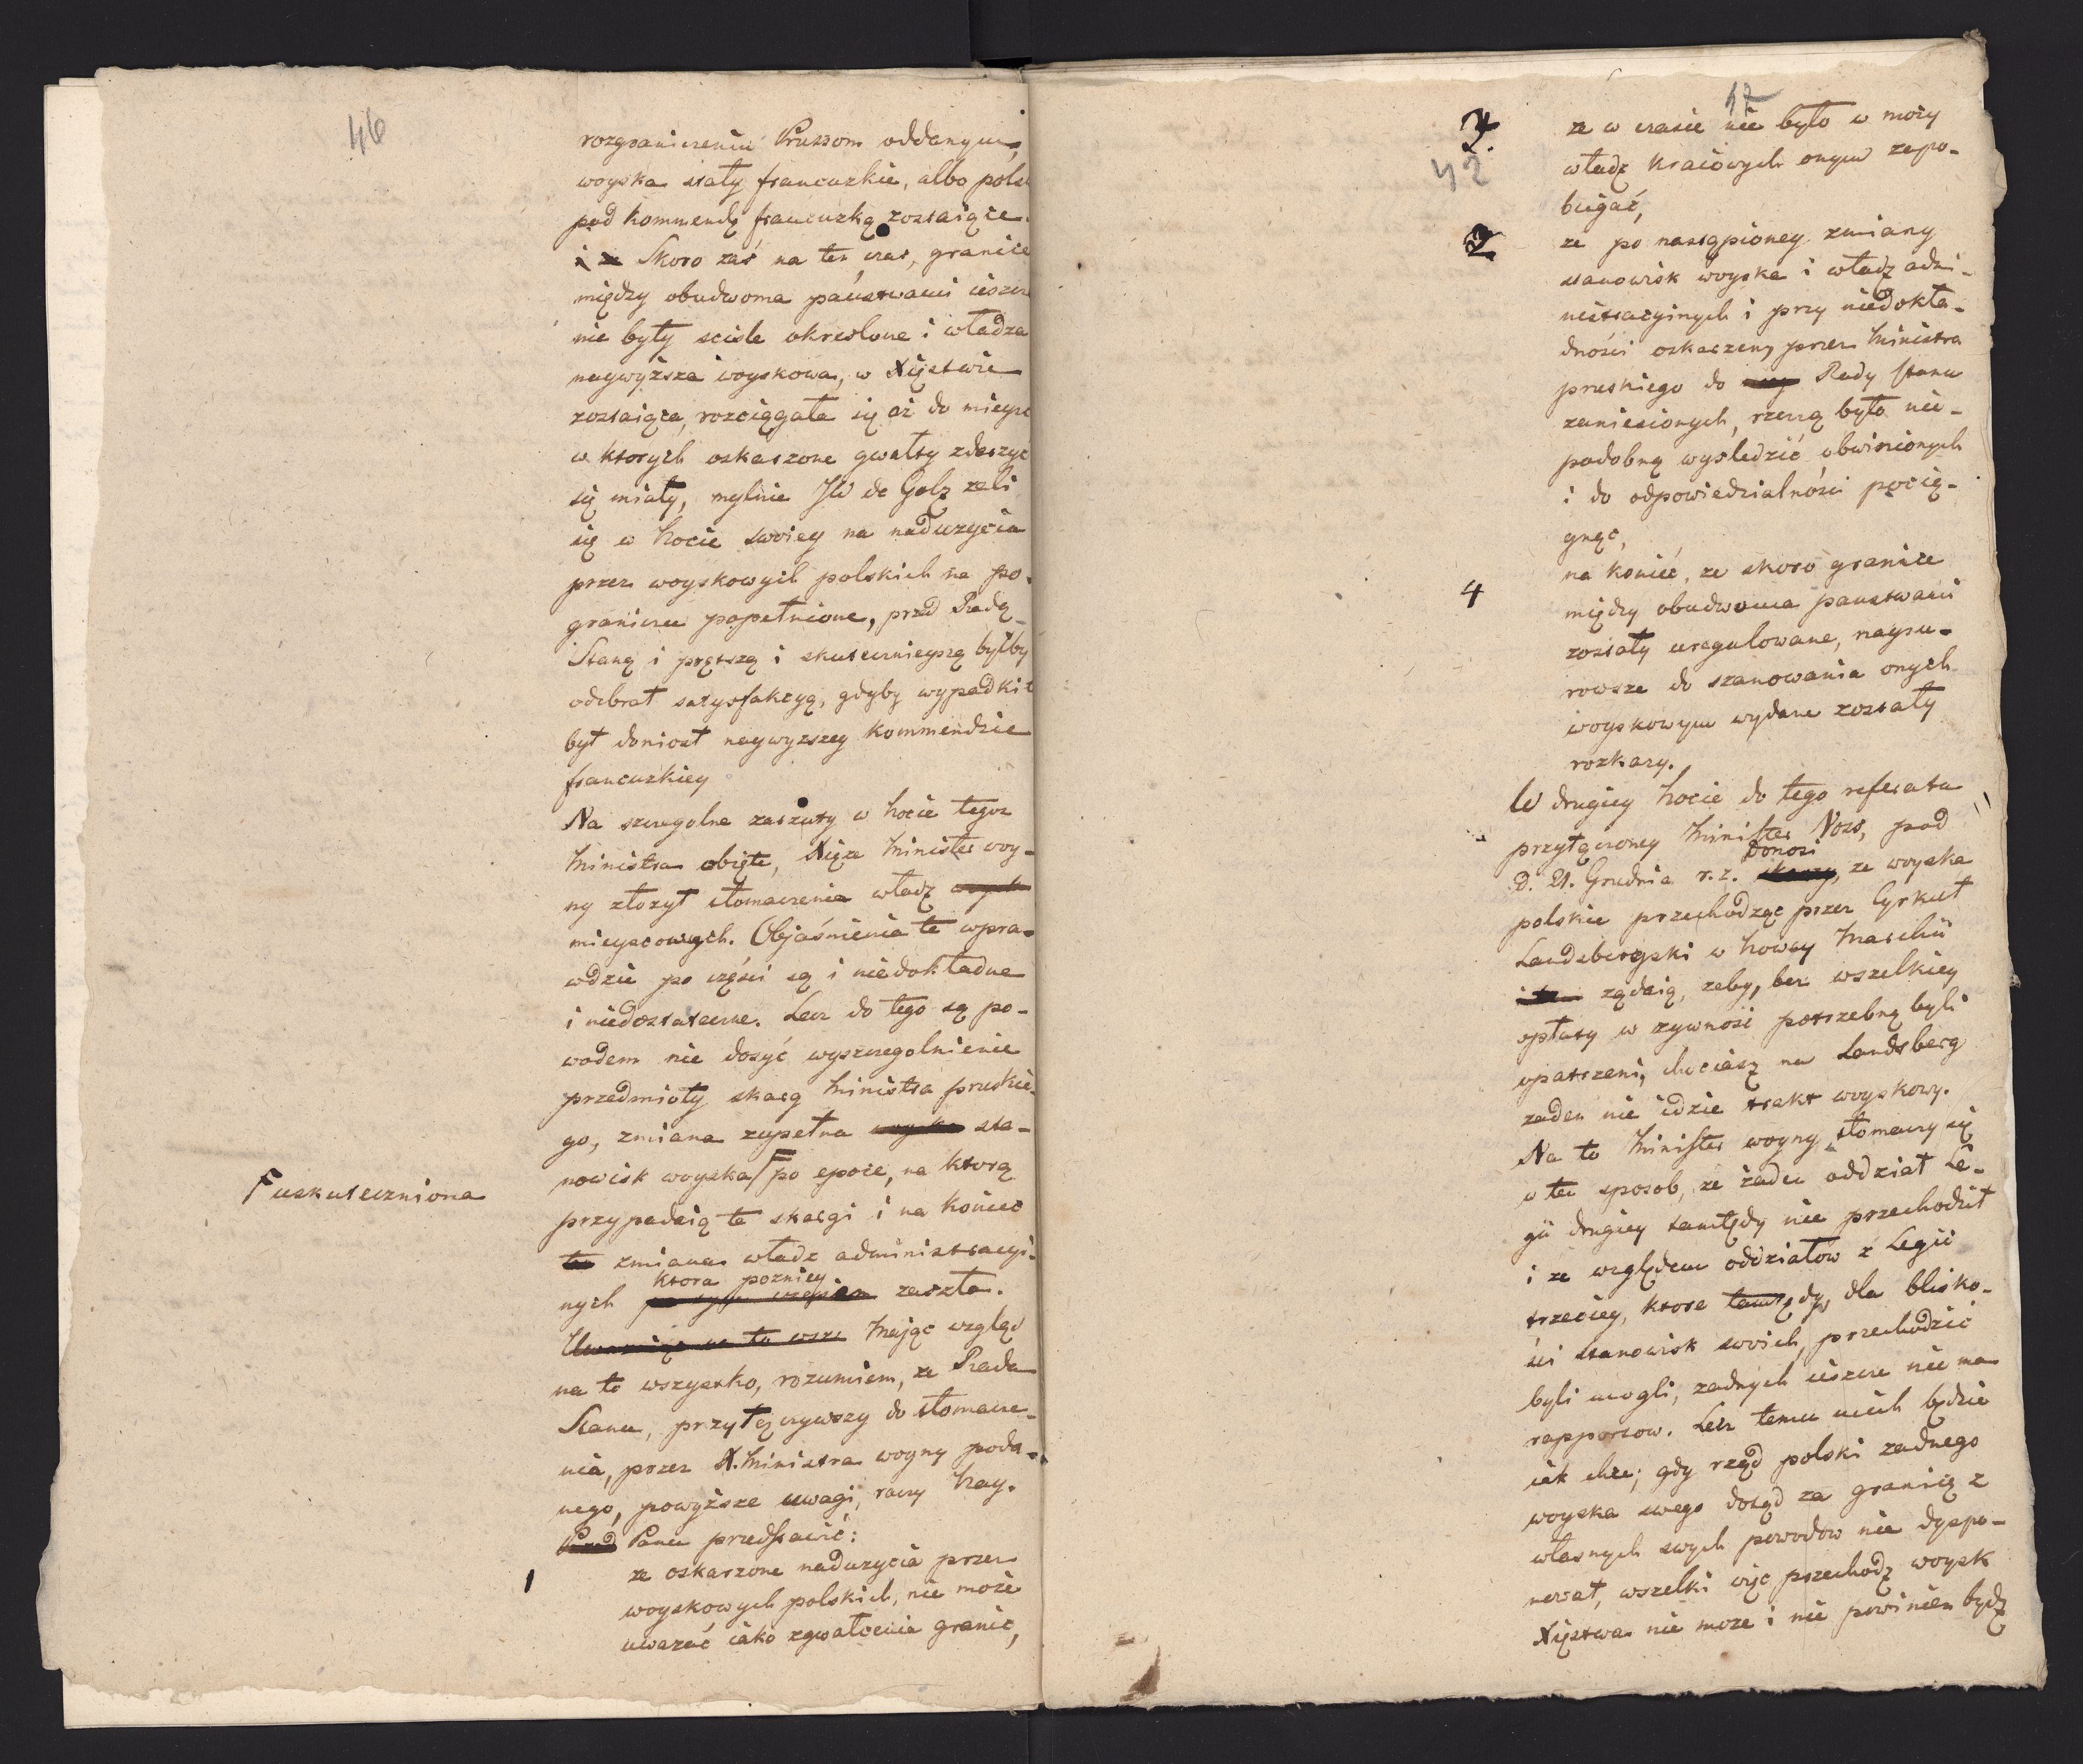 46
rozgraniczeniu Prussom oddanym,
woyska stały francuzkie, albo polsk
pod kommendą francuzką zostaiące.
Skoro zaś na ten czas, granice
między obudwoma państwami ieszcze
nie były scisle okreslone i władza
naywyższa woyskowa, w Xięstwie
zostaiąca, rozciągała się aż do mieysc
w ktorych oskarzone gwałty zdarzyć
się miały, mylnie JW de Golz żali
się w Nocie swoiey na nadużycia
przez woyskowych polskich na po-
graniczu popełnione, przed Radą
Stanu i prętszą i skutecznieyszą byłby
odebrał satysfakcyą, gdyby wypadki t
był doniosł naywyzszey kommendzie
francuzkiey
Na szczegolne zarzuty w Nocie tegoż
Ministra obięte, Xiąże Minister woy-
ny złożył tłomaczenia władz
mieyscowych. Objaśnienia te wpra-
wdzie po części są i niedokładne
i niedostateczne. Lecz do tego są po-
wodem nie dosyć wyszczegolnienie
przedmioty skarg Ministra pruskie-
go, zmiana zupełna woyska sta-
nowisk woyska F po epoce, na ktorą
F uskuteczniona
przypadaią te skargi i na koniec
ta zmiana władz administracyi-
ktora pozniey
nych zaszła.
na to wsze Mając wzgląd
na to wszystko, rozumiem, ze Rada
Stanu, przyłączywszy do tłomacze-
nia, przez X. Ministra woyny poda-
nego, powyższe uwagi, raczy Nay.
Panu przedstawić:
1 ze oskarzone nadużycia przez
woyskowych polskich, nie może
uważać iako zgwałcenie granic,
47
42
2. ze w czasie nie było w mocy
władz kraiowych onym zapo-
biegać,
ze po nastąpioney zmiany
stanowisk woyska i władz admi-
nistracyinych i przy niedokła-
dności oskarzeń, przez Ministra
pruskiego do Rady Stanu
zaniesionych, rzeczą było nie-
podobną wysledzić obwinionych
i do odpowiedzialności pocią-
gnąć,
4 na koniec, ze skoro granice
między obudwoma panstwami
zostały uregulowane, naysu-
rowsze do szanowania onych
woyskowym wydane zostały
rozkazy.
W drugiey Nocie do tego referatu
przyłączoney Minister Voss, pod
donosi
d. 21. Grudnia r. z. skarzy, ze woyska
polskie przechodząc przez Cyrkuł
Landsbergski w Nowey Marchii
żądaią, zeby, bez wszelkiey
opłaty w zywność potrzebną byli
opatrzeni, chociasz na Landsberg
zaden nie idzie trakt woyskowy.
Na to Minister woyny tłomaczy się
w ten sposob, ze żaden oddział Le-
gii drugiey tamtędy nie przechodził
i ze względem oddziałow z Legii
trzeciey, ktore tamtędy, dla blisko-
ści stanowisk swoich, przechodzić
byli mogli, zadnych ieszcze nie ma
rapportow. Lecz temu niech będzie
iak chce; gdy rząd polski zadnego
woyska swego dotąd za granicę z
własnych swych powodow nie dyspo-
nował, wszelki więc przechod woysk
Xięstwa nie moze i nie powinien bydz